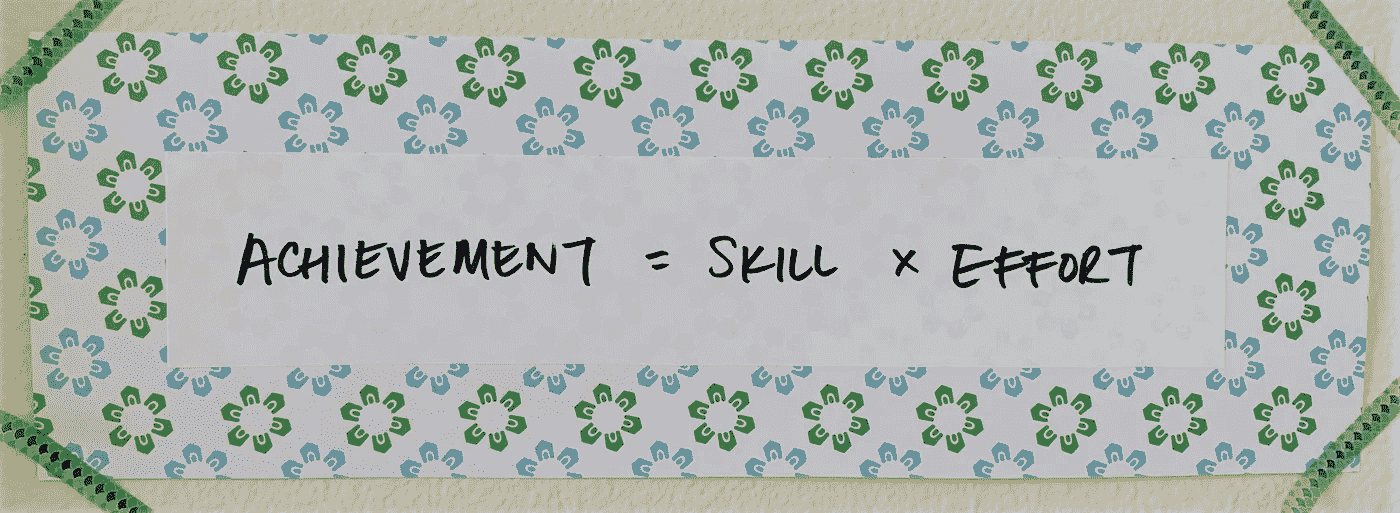 ACHIEVEMENT = SKILL × EFFORT